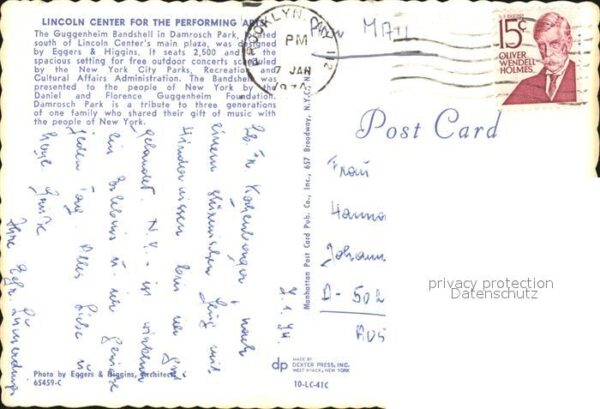 LINCOLN CENTER FOR THE PERFORMING ARTS
The Guggenheim Bandshell in Damrosch Park, located
south of Lincoln Center's main plaza, was designed
by Eggers & Higgins. It seats 2,500 and is the
spacious setting for free outdoor concerts scheduled
by the New York City Parks, Recreation and
Cultural Affairs Administration. The Bandshell was
presented to the people of New York by the
Daniel and Florence Guggenheim Foundation.
Damrosch Park is a tribute to three generations
of one family who shared their gift of music with
the people of New York.
BROOKLYN, NY 112
PM
7 JAN
MAIL
U.S. POSTAGE
15c
OLIVER
WENDELL
HOLMES
Post Card
Manhattan Post Card Pub. Co., Inc., 657 Broadway, N.Y.C.
Frau
Hanna
Johann
D-502
privacy protection
Datenschutz
nach
einem stürmischen Flug mit
Hindernissen bin ich gut
gelandet. N.Y. - ist wirklich
ein Erlebnis u. ich genieße
jeden Tag. Alles Liebe u.
Grüße
Ihre
Photo by Eggers & Higgins, Architects
65459-C
dp
MADE BY
DEXTER PRESS, INC.
WEST NYACK, NEW YORK
10-LC-41C